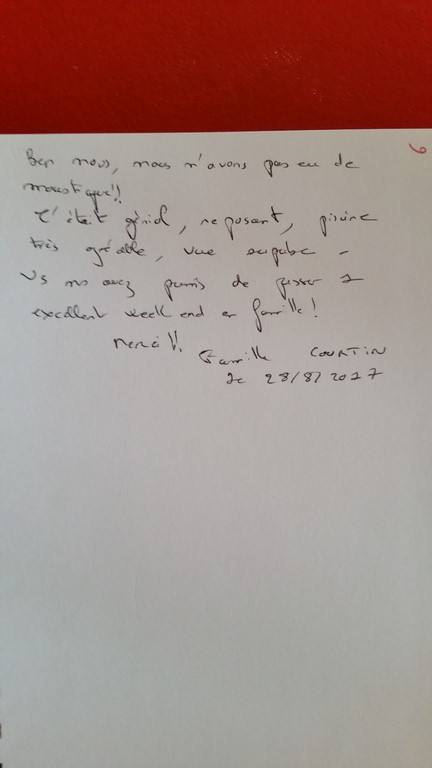 6
Ben nous, nous n'avons pas eu de
moustique!!
C'était génial, reposant, piscine
très agréable, vue superbe -
Vs ns avez permis de passer 1
excellent week end en famille!
Merci!!
Famille COURTIN
Le 28/8/2017